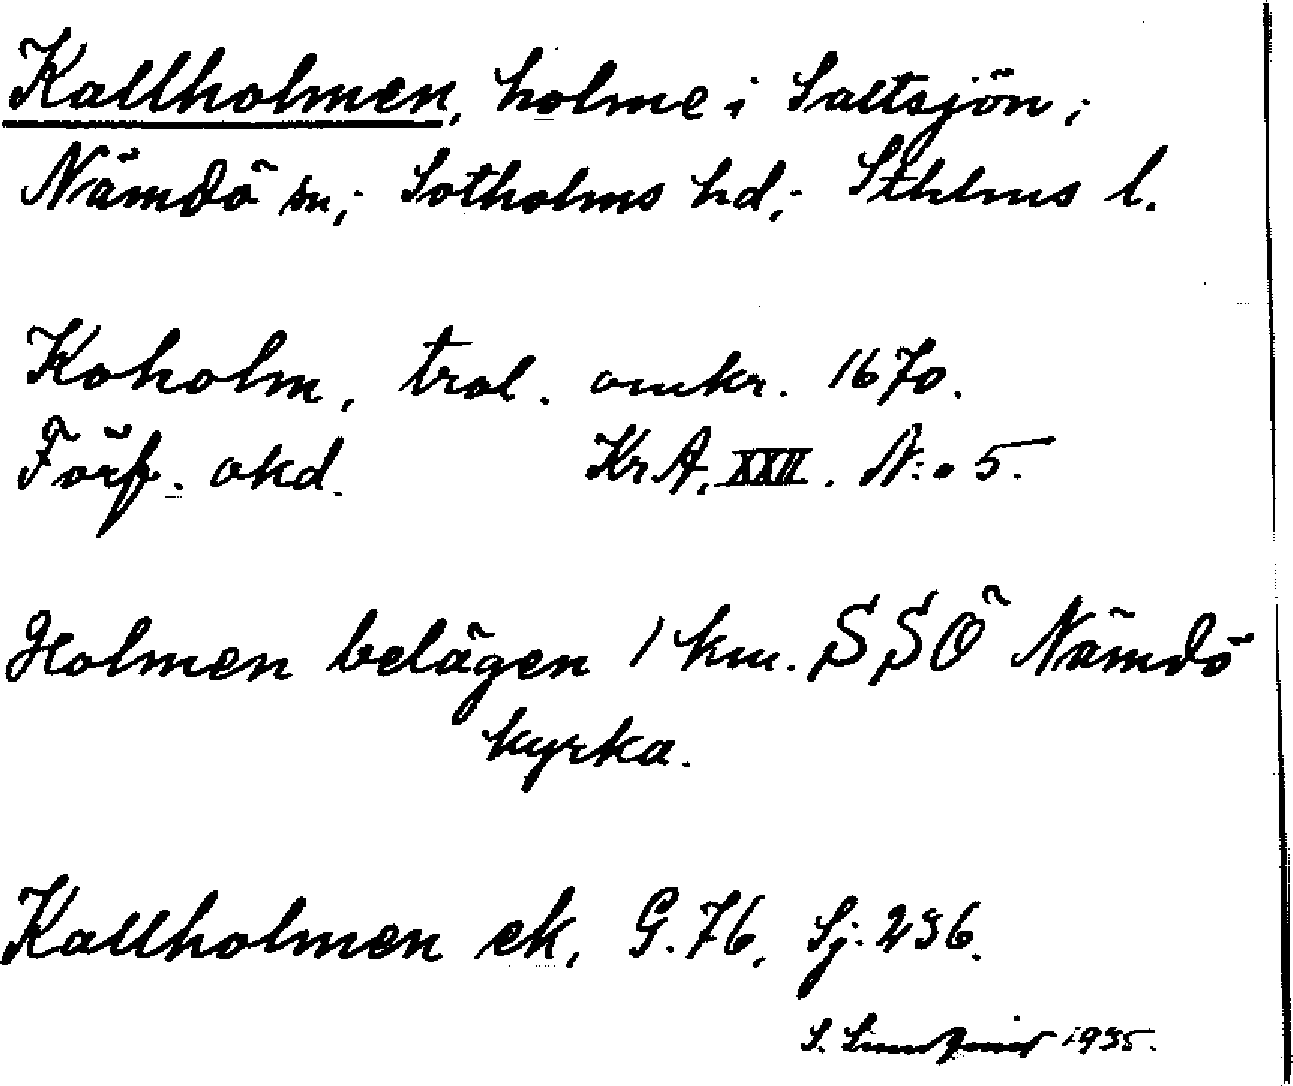 Kallholmen, holme i Saltsjön;
Nämdö sn; Sotholms hd; Sthlms l.
Koholm, trol. omkr. 1670.
Förf. okd. Kr.A. XXII. N:o 5.
Holmen belägen 1 km. SSÖ Nämdö
kyrka.
Kallholmen ek, G. 76, Sj. 236.
S. 1935.